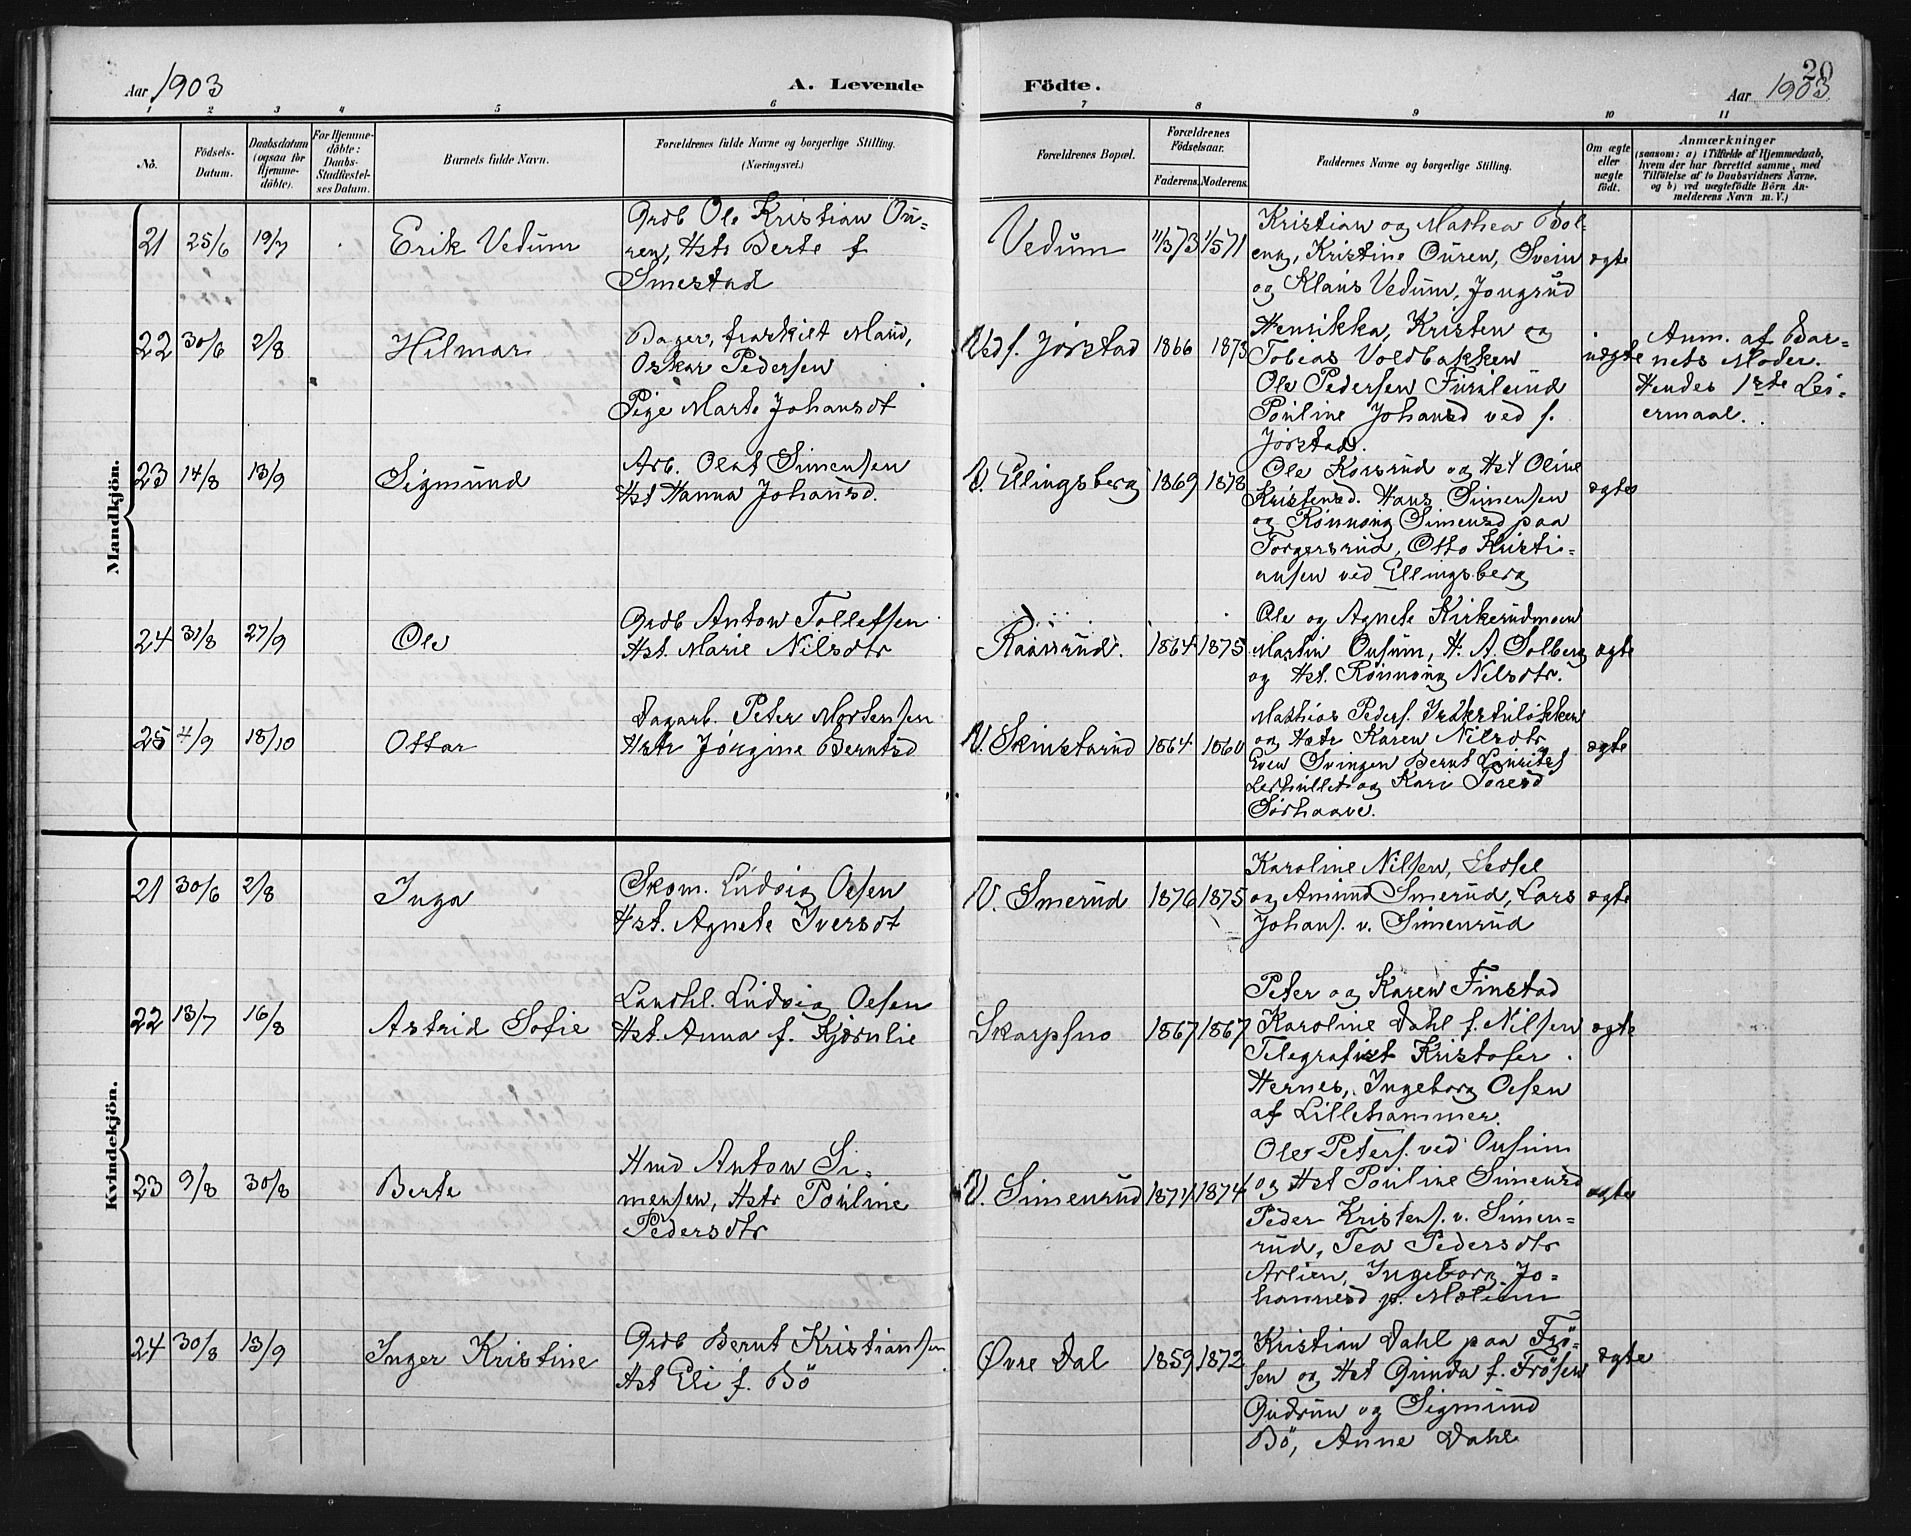 Aar 1903
A. Levende
Födte.
20
Aar 1903.
1 2 3 4 5 6 7 8 9 10 11
No.
Födsels-
Datum.
Daabsdatum
(ogsaa for
Hjemme-
döbte).
For Hjemme-
döbte:
Daabs-
Stadfæstel-
ses Datum.
Barnets fulde Navn.
Forældrenes fulde Navne og borgerlige Stilling.
(Næringsvei.)
Forældrenes Bopæl.
Forældrenes
Födselsaar.
Faderens. Moderens.
Faddernes Navne og borgerlige Stilling.
Om ægte
eller
uægte
födt.
Anmærkninger
(saasom: a) i Tilfælde af Hjemmedaab,
hvem der har forrettet samme, med
Tilföielse af to Daabsvidners Navne,
og b) ved uægtefödte Börn An-
melderens Navn m. V.)
Mandkjön.
21 25/6 19/7 Erik Vedum
Grdb Ole Kristian Ou-
ren, Hstr Berte f
Smestad
Vedum 11/3 73 1/5 71
Kristian og Mathea Bol-
eng, Kristine Ouren, Svein
og Klaus Vedum, Jongsrud
ægte
22 30/6 2/8 Hilmar
Bager, fraskilt Mand,
Oskar Pedersen
Pige Marte Johansdt
Ved f. Jørstad 1866 1873
Henrikka, Kristen og
Tobias Voldbakken
Ole Pedersen Furulund
Pouline Johansd ved f.
Jørstad.
uægte
Anm. af Bar-
nets Moder.
Hendes 1ste Lei-
ermaal.
23 14/8 13/9 Sigmund
Arb. Olaf Simensen
Hst Hanna Johansd.
V. Ellingsberg 1869 1878
Ole Korsrud og Hst Oline
Kristensd. Hans Simensen
og Rønnoug Simensd paa
Torgersrud, Otto Kristi-
ansen ved Ellingsberg
ægte
24 31/8 27/9 Ole
Grdb Anton Tollefsen
Hst. Marie Nilsdtr
Raassrud. 1864 1875
Ole og Agnete Kirkerudmoen
Martin Ousum, H. A. Solberg
og Hst. Rønnoug Nilsdtr.
ægte
25 4/9 18/10 Ottar
Dagarb. Peter Mortensen
Hstr Jørgine Berntsd
V. Skinstarud 1864 1860
Mathias Peders.
og Hstr Karen Nilsdtr
Even Svingen Bernt Laurits
og Kari Toresd
Sørhaave.
ægte
Kvindekjön.
21 30/6 2/8 Inga
Skom. Ludvig Olsen
Hst. Agnete Iversdt
V. Smerud 1876 1875
Karoline Nilsen, Sedsel
og Amund Smerud, Lars
Johans. v. Simenrud
ægte
22 13/7 16/8 Astrid Sofie
Landhl. Ludvig Olsen
Hst. Anna f. Kjørnlie
Skarpsno 1867 1867
Peter og Karen Finstad
Karoline Dahl f. Nilsen
Telegrafist Kristofer
Hernes, Ingeborg Olsen
af Lillehammer.
ægte
23 9/8 30/8 Berte
Hmd Anton Si-
mensen, Hstr Pouline
Pedersdtr
V. Simenrud 1874 1874
Ole Peters. ved Ousum
og Hst Pouline Simensd
Peder Kristens. v. Simen-
rud, Tea Pedersdtr
Arlien, Ingeborg Jo-
hannesd p. Mælum
ægte
24 30/8 13/9 Inger Kristine
Grdb Bernt Kristiansen
Hst Eli f. Bö
Øvre Dal 1859 1872
Kristian Dahl paa Frö-
sen og Hst Grinda f. Frösen
Gudrun og Sigmund
Bö, Anne Dahl
ægte